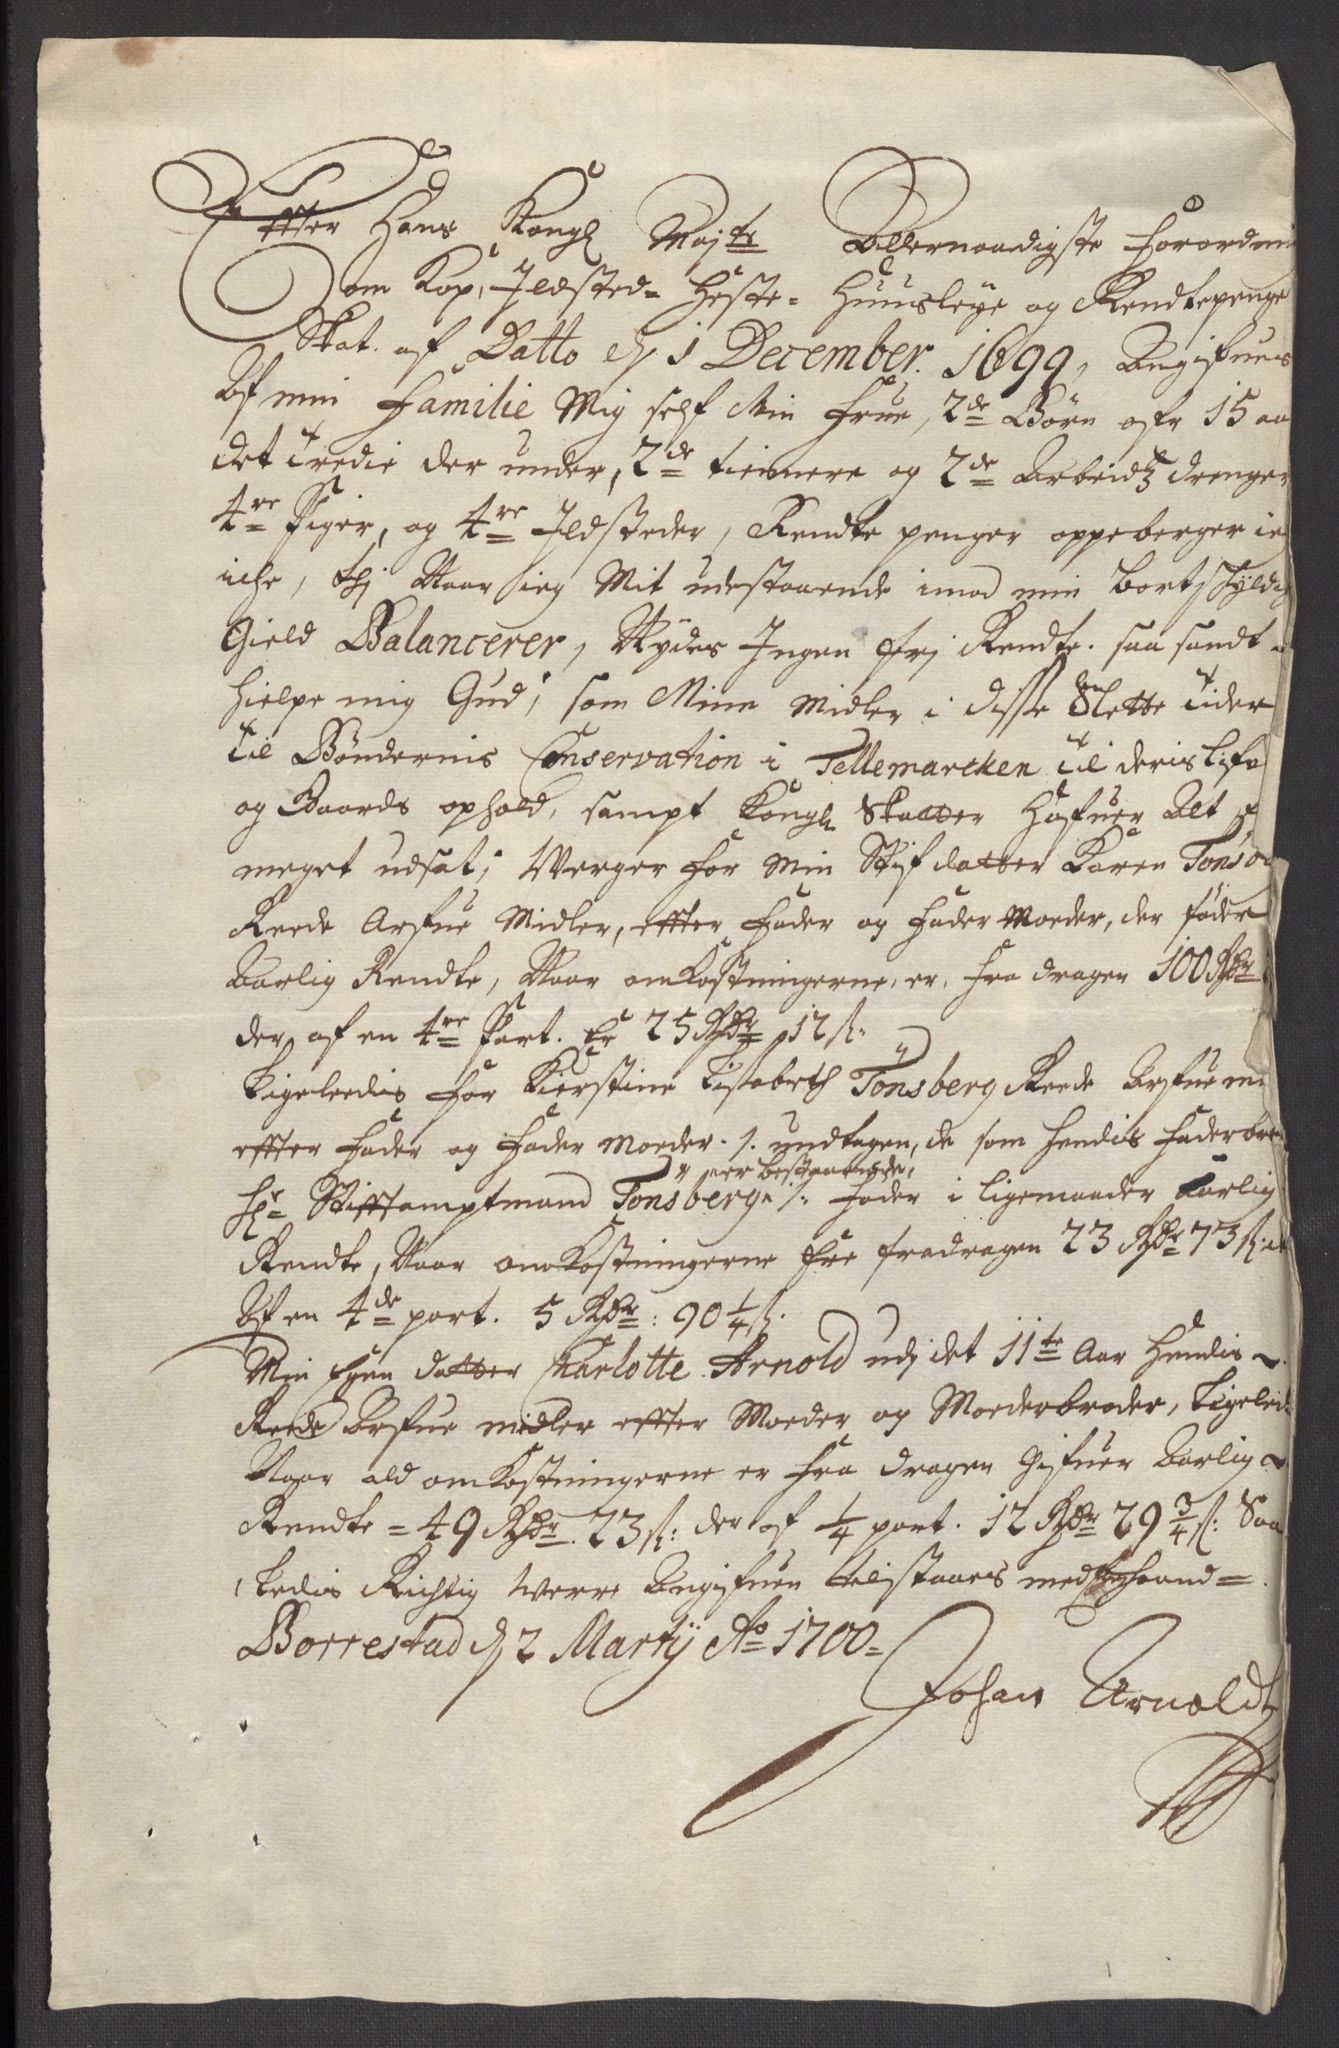 Effter Hans Kongl Maj:ts Allernaadigste forordni
om Kop, Ildsted= Heste= Huusleye og Rendtepenge
Skat. af Datto d 1 December. 1699, Angifues
Af min Familie Mig self Min Frue, 2de Børn ofr 15 aa
det tredie der under, 2de tiennere og 2de Arbeidtz drenger
4re Piger, og 4re Ildsteder, Rendte penger oppeberger ie
iche, thj Naar ieg Mit udestaaende imod min bortschyldig
Gield Balancerer, Nydes Ingen frj Rendte. saa sandt
hielpe mig Gud, som Mine Midler i disse Slette tider
til Bøndernis Conservation i Tellemarcken til deris Lifs
og Gaards ophold, sampt Kongl. Skatter hafuer Alt
meget udsat; Werger for Min Stifdatter Karen Tonsb
Reede Arfue Midler, effter Fader og Fader Moeder, der føder
Aarlig Rendte, Naar omKostningerne, er, fra dragen 100 Rdr
der af en 4re Part. Er 25 Rdr 12 s:
Ligeledis for Kierstine Lisabeth Tönsberg Reede Arfue mi
effter Fader og Fader Moeder /: undtagen, de som hendis Faderbro
Hr Stifftamptmand Tönsberg er bestaaende, :/ føder i ligemaader Aarlig
Rendte, Naar omKostningerne Ere fradragen 23 Rdr 73 s:
Af en 4de part. 5 Rdr: 90 1/4 s.
Min Egen datter Charlotte Arnold udj det 11te Aar Hendis
Reede Arfue midler effter Moeder og Moederbroder, Ligeled
Naar ald omKostningerne er fra dragen Gifuer Aarlig
Rendte = 49 Rdr. 23 s: der af 1/4 part. 12 Rdr 29 3/4 s: Saa
ledis Richtig were Angifuen tilstaaes med haand=
Borrestad d 2 Martij Ao 1700=
Johan Arnoldt